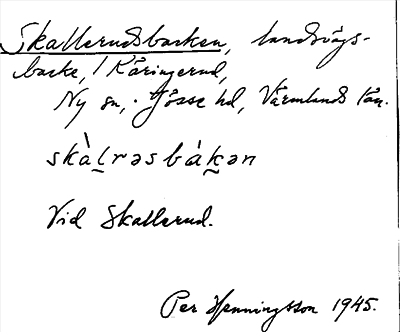 Skallerudsbacken, landsvägs-
backe, / Käringerud,
Ny sn, Jösse hd, Värmlands län.
skàḻrəsbáḵən
Vid Skallerud.
Per Henningsson 1945.